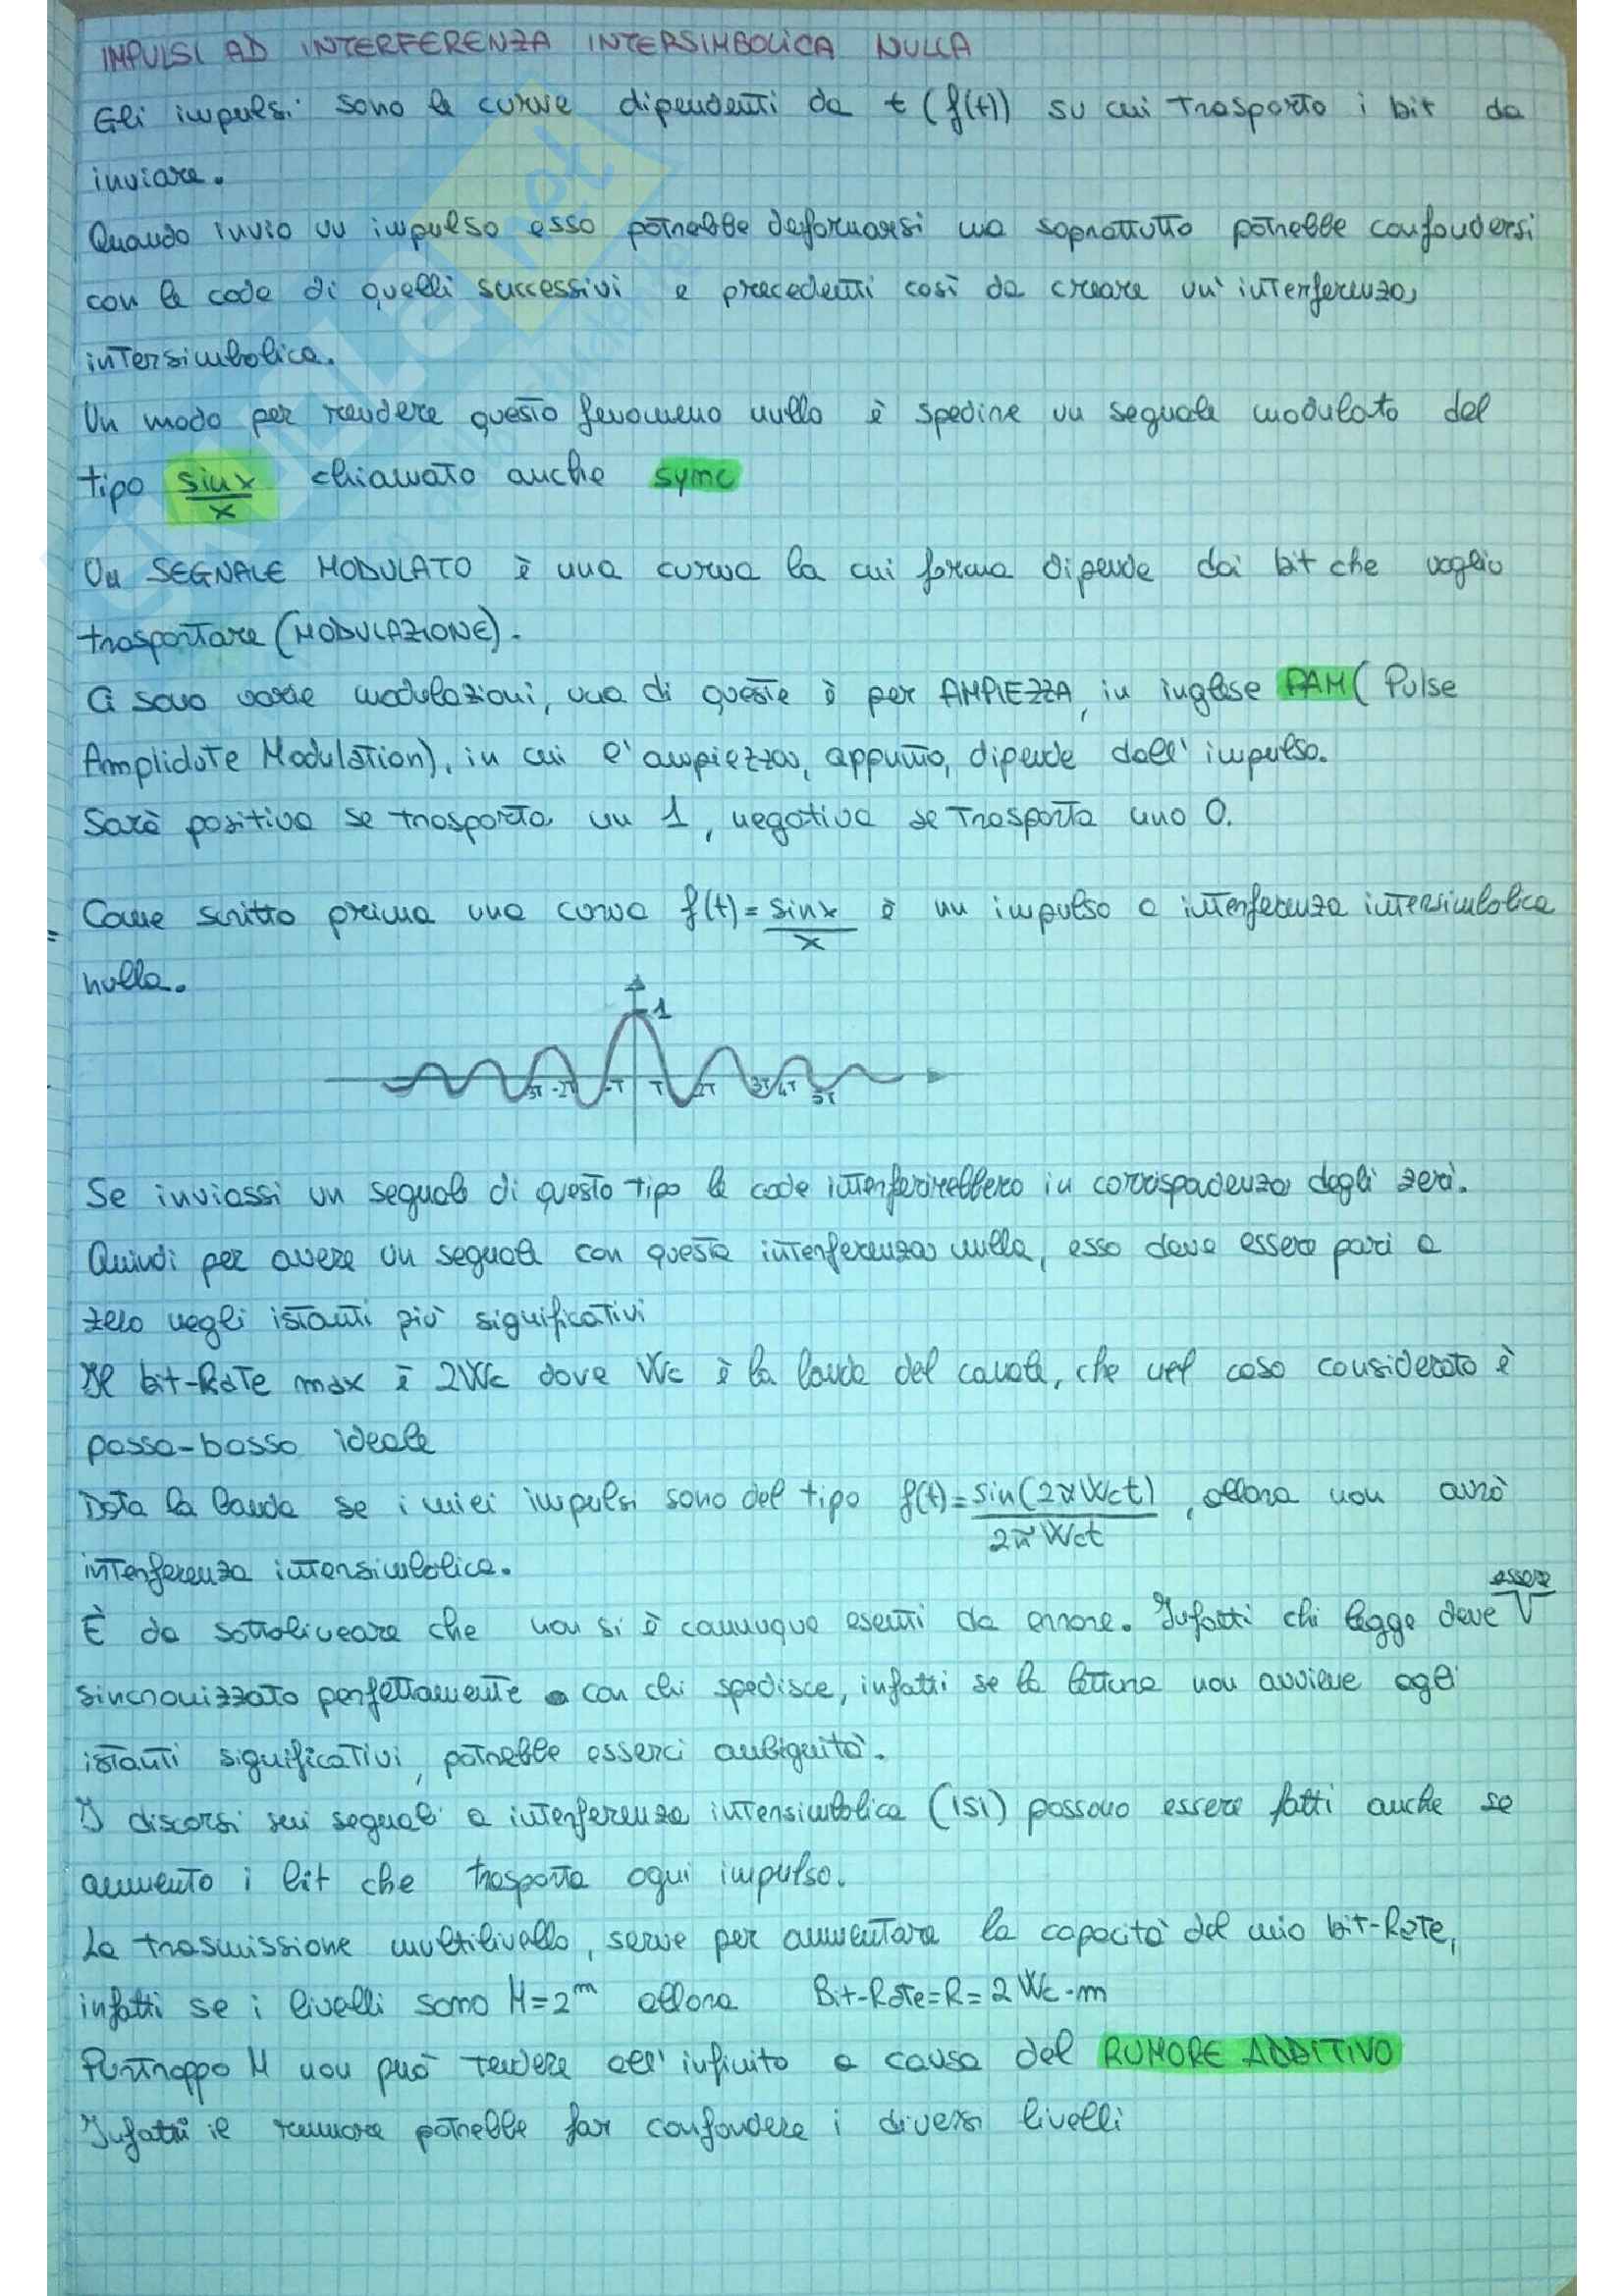 IMPULSI AD INTERFERENZA INTERSIMBOLICA NULLA
Gli impulsi sono le curve dipendenti da t (f(t)) su cui trasporto i bit da
inviare.
Quando invio un impulso esso potrebbe deformarsi ma soprattutto potrebbe confondersi
con le code di quelli successivi e precedenti così da creare un'interferenza
intersimbolica.
Un modo per rendere questo fenomeno nullo è spedire un segnale modulato del
tipo sinx/x chiamato anche sync
Un SEGNALE MODULATO è una curva la cui forma dipende dai bit che voglio
trasportare (MODULAZIONE).
Ci sono varie modulazioni, una di queste è per AMPIEZZA, in inglese PAM (Pulse
Amplidute Modulation), in cui l'ampiezza, appunto, dipende dall'impulso.
Sarà positiva se trasporta un 1, negativa se trasporta uno 0.
Come scritto prima una curva f(t)= sinx/x è un impulso a interferenza intersimbolica
nulla.
1
3T -2T -T T 2T 3T 4T 5T
Se inviassi un segnale di questo tipo le code interferirebbero in corrispodenza degli zeri.
Quindi per avere un segnale con questa interferenza nulla, esso deve essere pari a
zero negli istanti più significativi
Il bit-Rate max è 2Wc dove Wc è la banda del canale, che nel caso considerato è
passa-basso ideale
Data la banda se i miei impulsi sono del tipo f(t)= sin(2πWct)/2πWct, allora non avrò
interferenza intersimbolica.
È da sottolineare che non si è comunque esenti da errore. Infatti chi legge deve essere
sincronizzato perfettamente con chi spedisce, infatti se la lettura non avviene agli
istanti significativi, potrebbe esserci ambiguità.
I discorsi sui segnali a interferenza intersimbolica (ISI) possono essere fatti anche se
aumento i bit che trasporta ogni impulso.
La trasmissione multilivello, serve per aumentare la capacità del mio bit-Rate,
infatti se i livelli sono M=2^m allora Bit-Rate=R=2Wc·m
Purtroppo M non può tendere all'infinito a causa del RUMORE ADDITIVO
Infatti il rumore potrebbe far confondere i diversi livelli